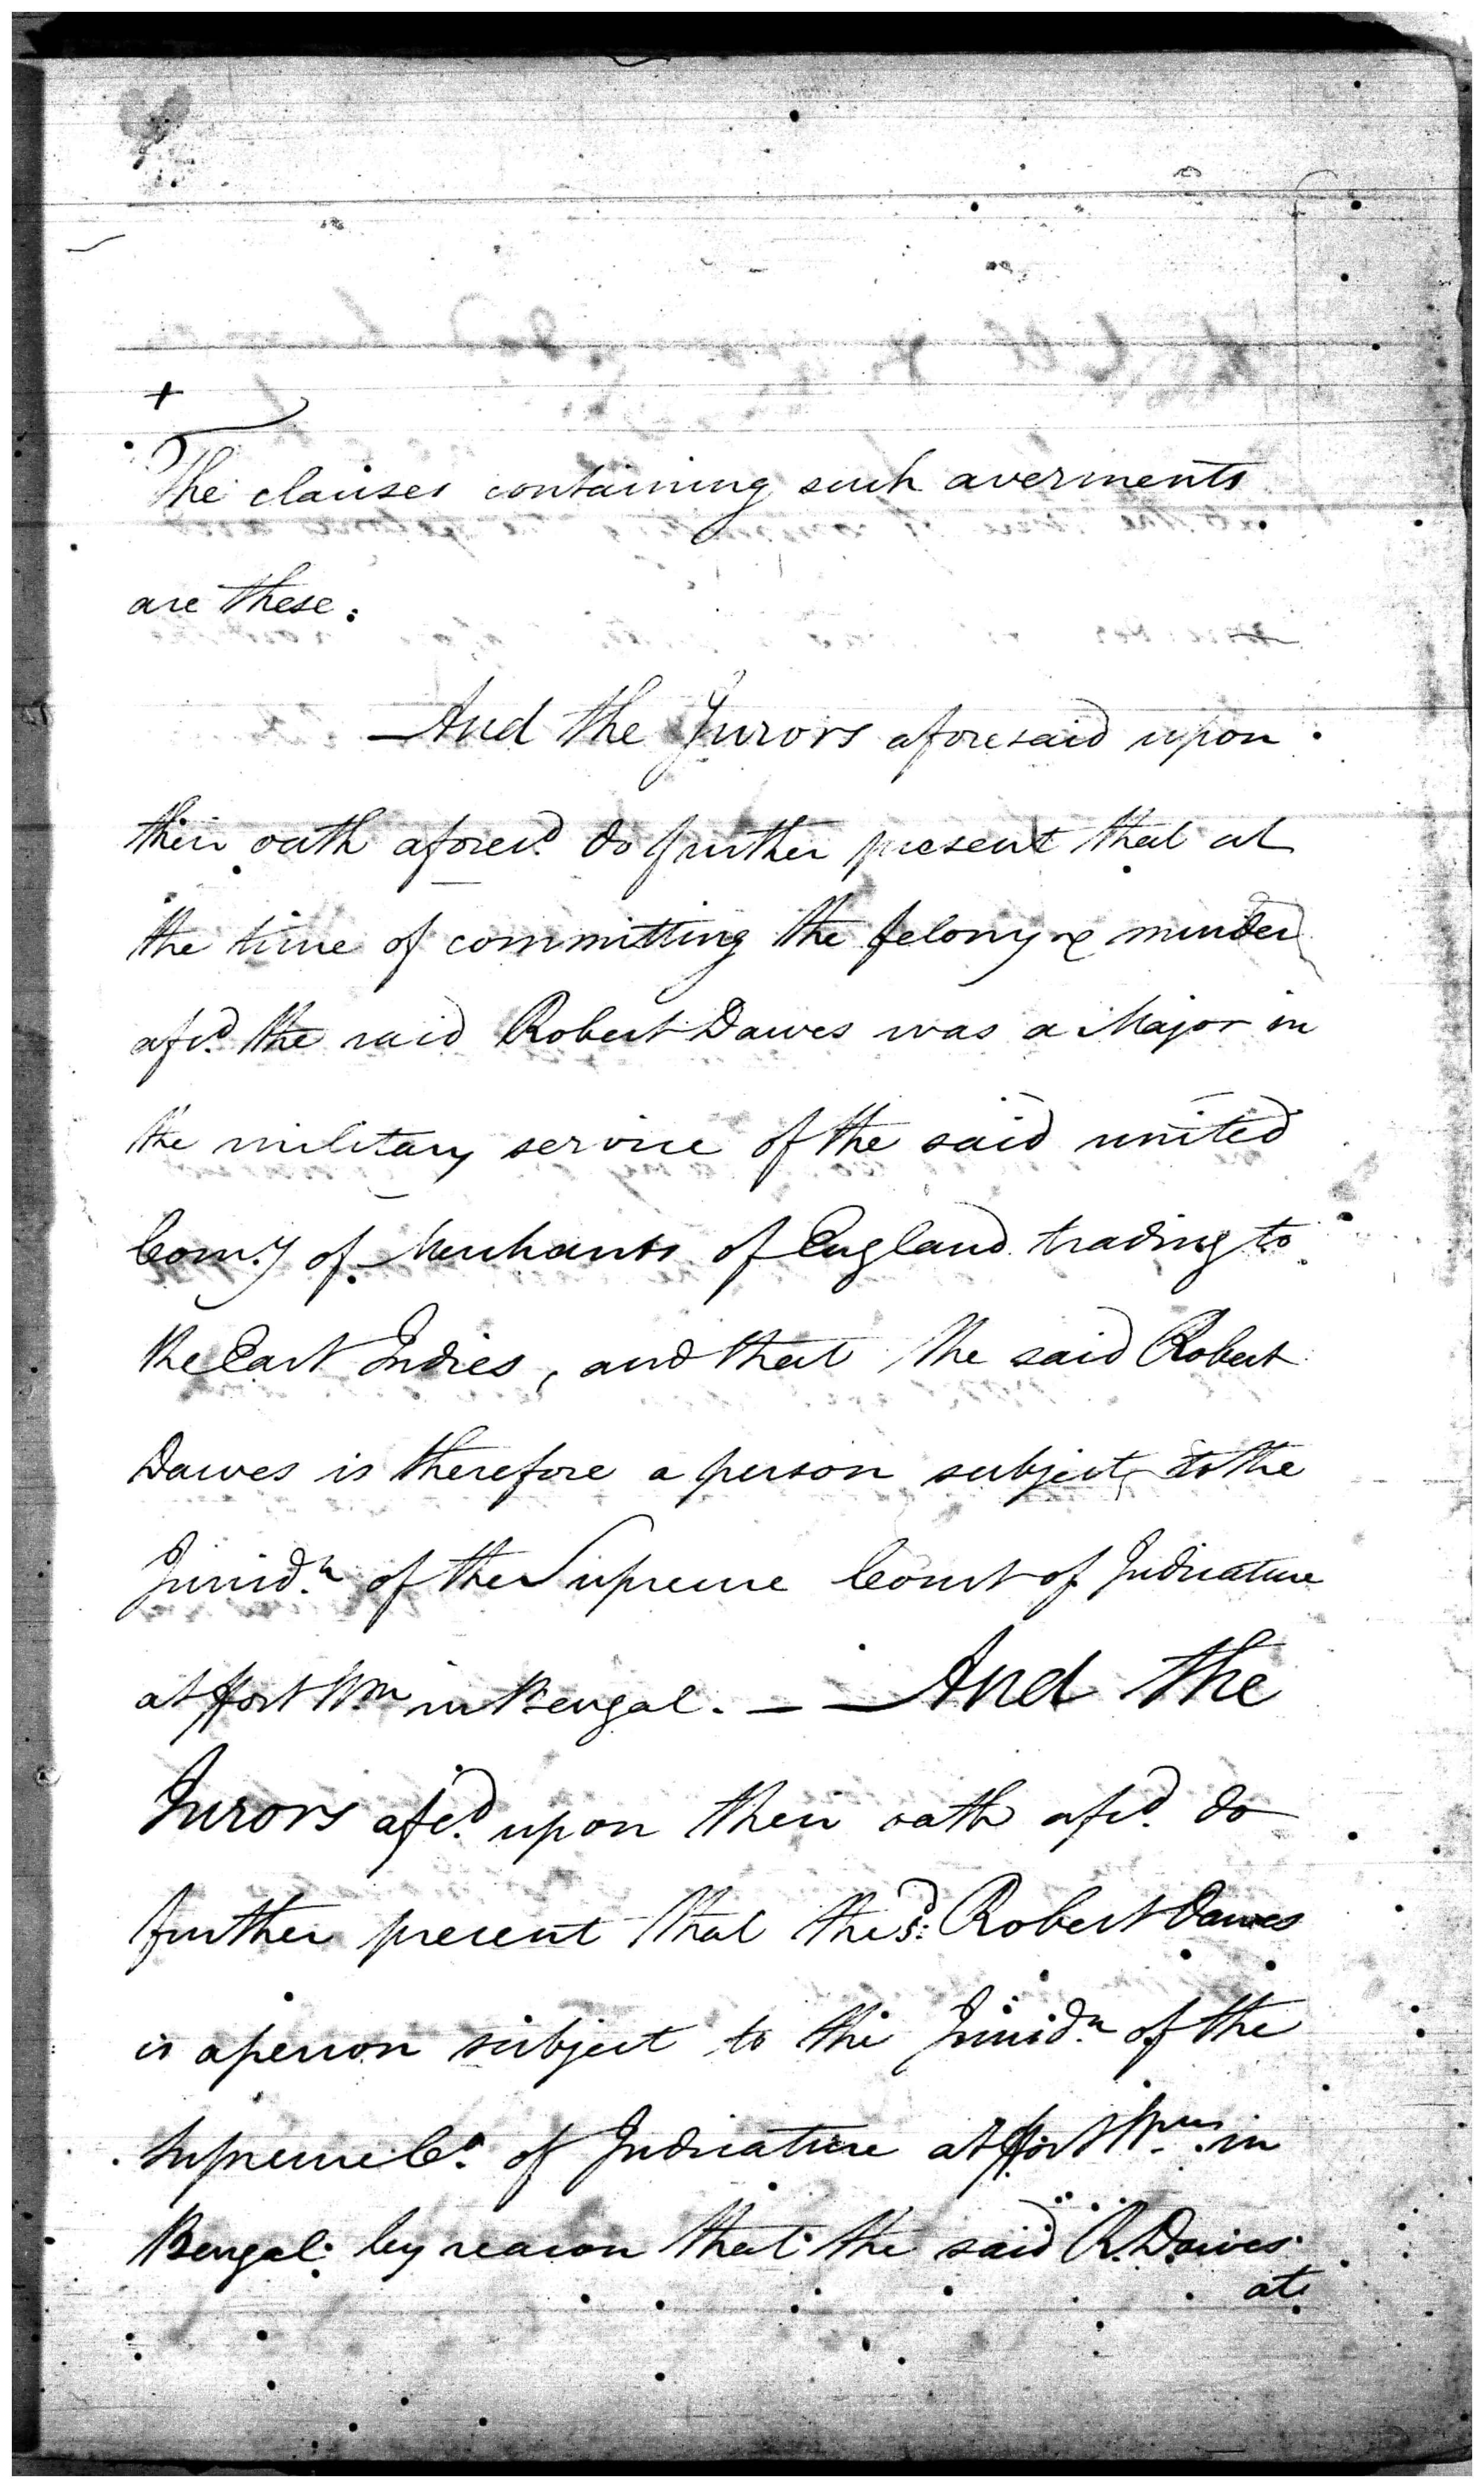 +
The clauses containing such averments
are these:
And the Jurors aforesaid upon
their oath aforesd. do further present that at
the time of committing the felony & murder
afsd. the said Robert Dawes was a Major in
the military service of the said united
Comy. of Merchants of England trading to
the East Indies, and that the said Robert
Dawes is therefore a person subject to the
Jurisdn. of the Supreme Court of Judicature
at ffort Wm in Bengal. — And the
Jurors afsd. upon their oath afsd. do
further present that the sd: Robert Dawes
is a person subject to the Jurisdn. of the
Supreme Co. of Judicature at ffort Wm. in
Bengal by reason that the said R. Dawes
at